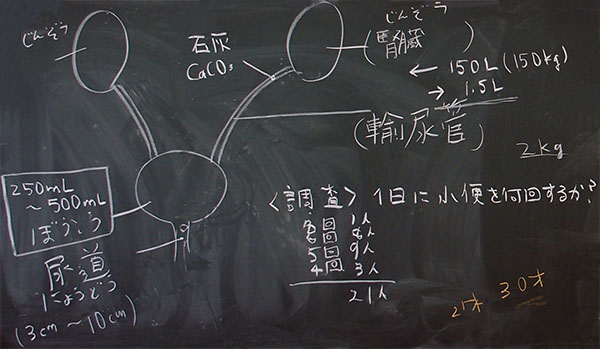 じんぞう
石灰
CaCO₃
じんぞう
(腎臓)
← 150L (150kg)
→ 1.5L
(輸尿官)
2kg
250mL
~500mL
ぼうこう
尿道
にょうどう
(3cm~10cm)
〈調査〉 1日に小便を何回するか?
回 1人
6回 8人
5回 9人
4回 3人
21人
21才 30才